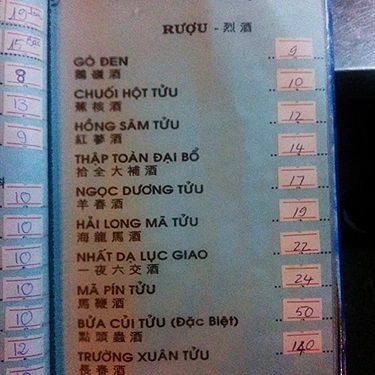 19
15
8
13
9
10
10
10
10
10
12
RƯỢU - 烈酒
GÒ ĐEN 9
鵝嶺酒
CHUỐI HỘT TỬU 10
蕉核酒
HỒNG SÂM TỬU 12
紅蔘酒
THẬP TOÀN ĐẠI BỔ 14
拾全大補酒
NGỌC DƯƠNG TỬU 17
羊春酒
HẢI LONG MÃ TỬU 19
海龍馬酒
NHẤT DẠ LỤC GIAO 22
一夜六交酒
MÃ PÍN TỬU 24
馬鞭酒
BỬA CỦI TỬU (Đặc Biệt) 50
點頭蟲酒
TRƯỜNG XUÂN TỬU
長春酒